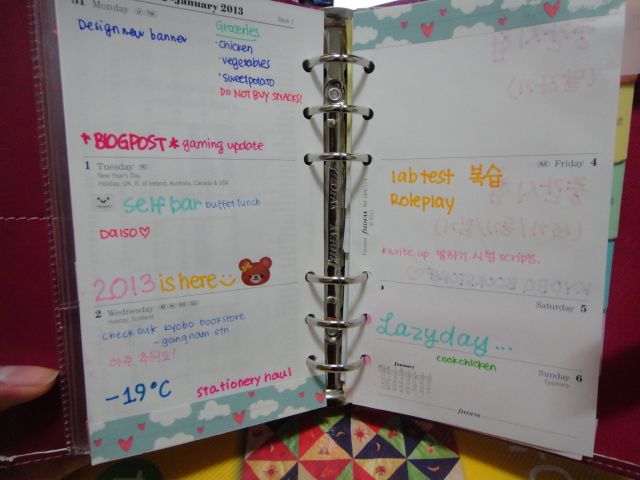 31 Monday
-January 2013
Week 1
Design new banner
Groceries
·chicken
·vegetables
·sweet potato
DO NOT BUY SNACKS!
*BLOGPOST* gaming update
1 Tuesday
New Year's Day
Holiday, UK, R. of Ireland, Australia, Canada & USA
selfbar buffet lunch
DAISO♡
2013 is here
2 Wednesday
Holiday, Scotland
check out kyobo bookstore
-gangnam stn
아주 추워요!
-19°C
stationery haul
Friday 4
lab test 복습
Roleplay
*write up 말하기 시험 scripts.
Saturday 5
Lazyday...
cook chicken
Sunday 6
Epiphany
January
filofax